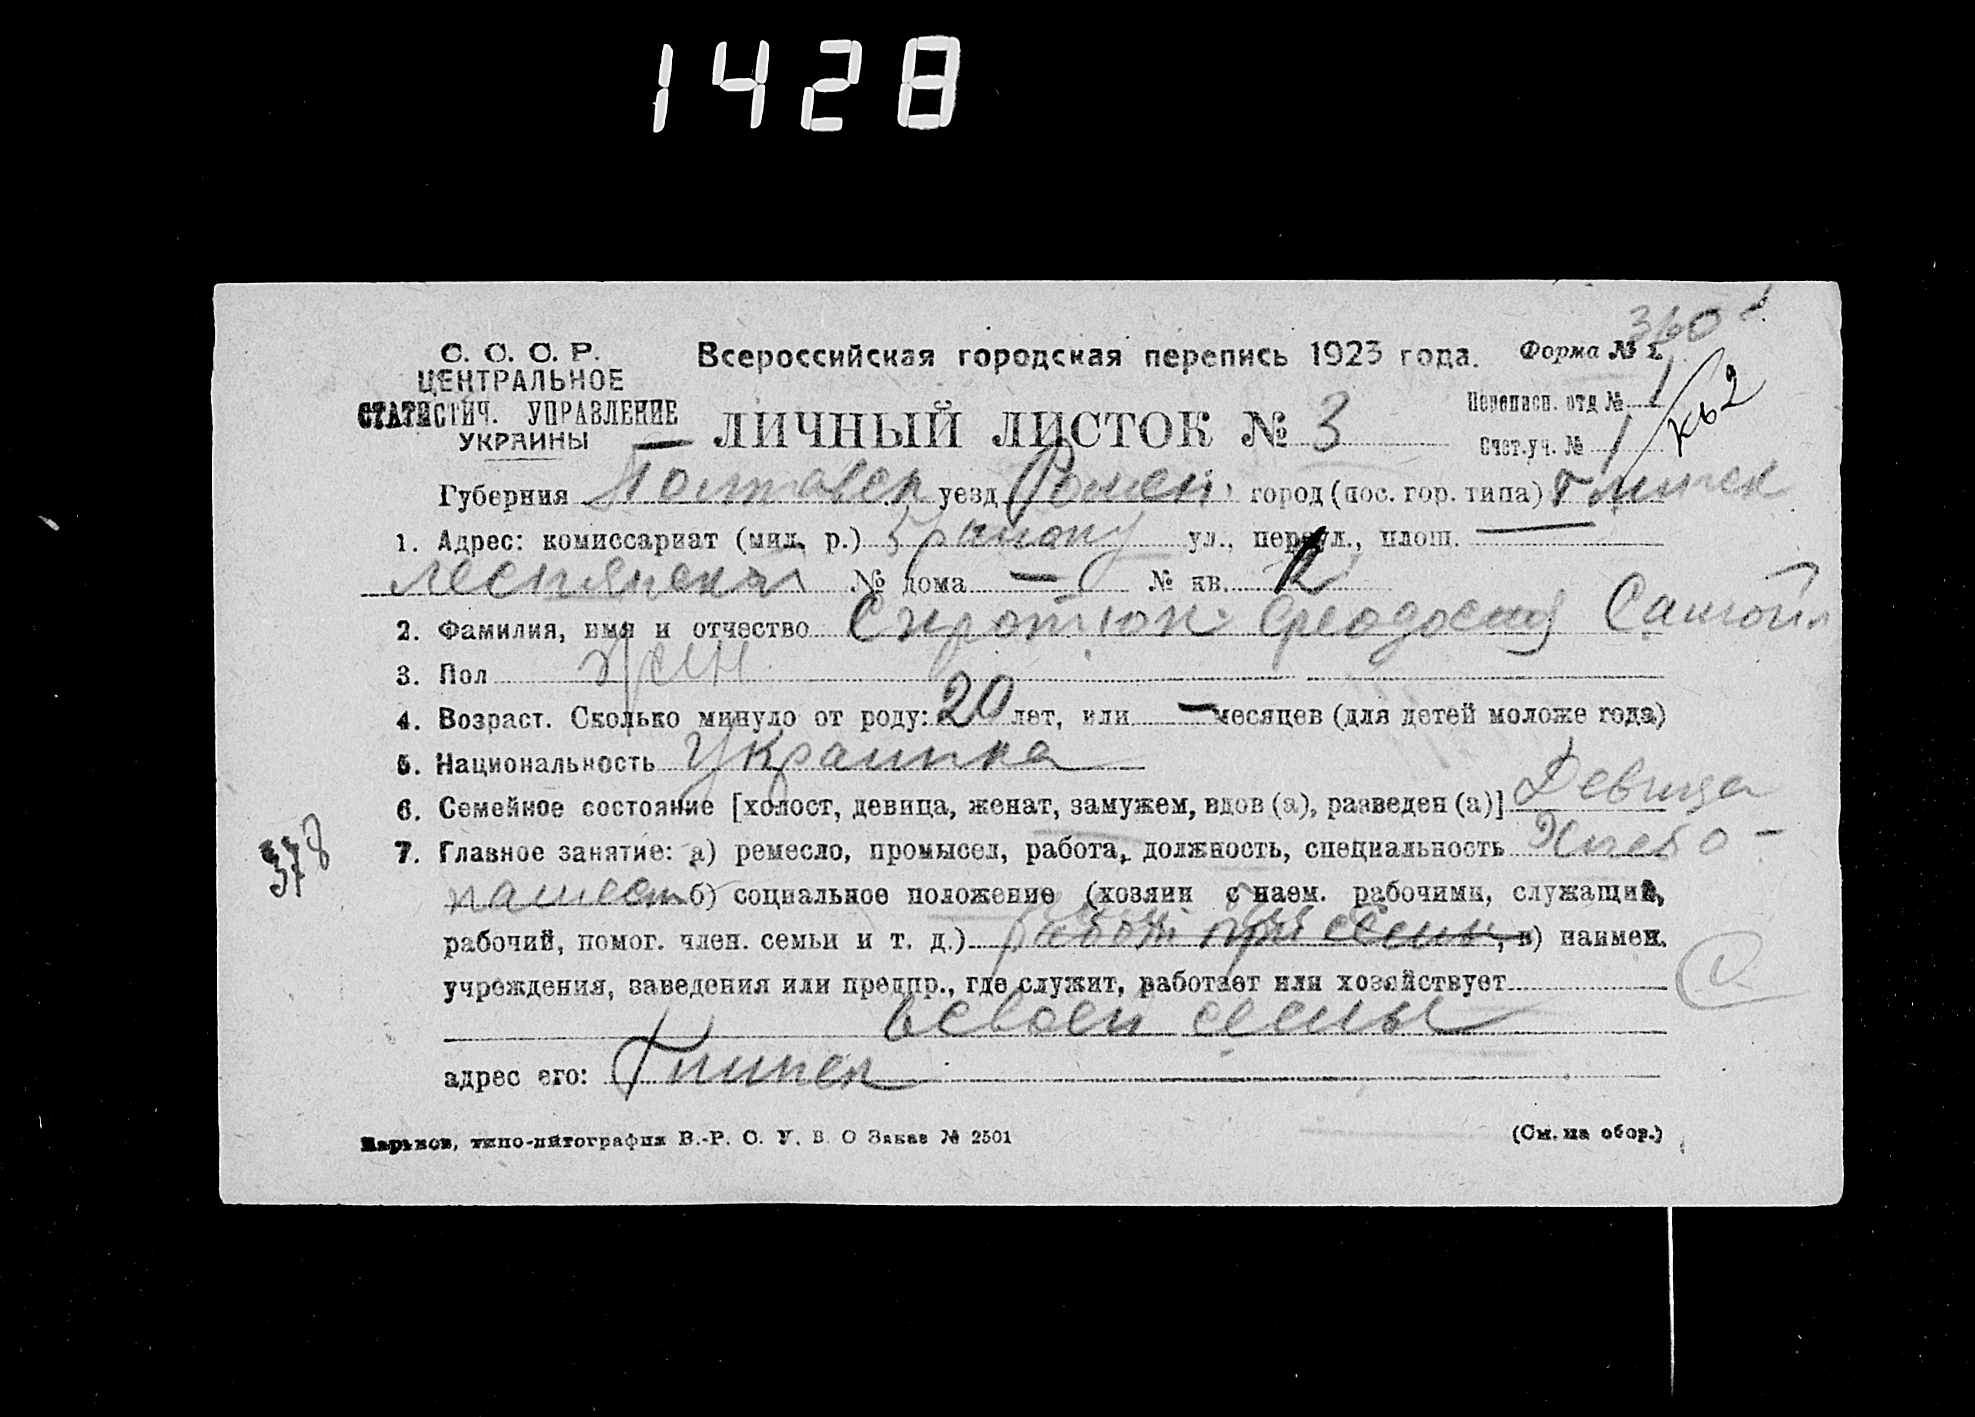 1428
360
С. С. С. Р.
ЦЕНТРАЛЬНОЕ
СТАТИСТИЧ. УПРАВЛЕНИЕ
УКРАИНЫ
Всероссийская городская перепись 1923 года.
Форма № 1.
ЛИЧНЫЙ ЛИСТОК № 3
Переписн. отд № 1
Счет.-уч. № 1
кв 2
Губерния Полтавск уезд Ромен. город (пос. гор. типа) Глинск
1. Адрес: комиссариат (мил. р.) 5 району ул., переул., площ. —
№ дома — № кв.
2. Фамилия, имя и отчество Сиротюк Феодосия Самойл
3. Пол жен
4. Возраст. Сколько минуло от роду: 20 лет, или — месяцев (для детей моложе года)
5. Национальность Украинка
6. Семейное состояние [холост, девица, женат, замужем, вдов (а), разведен (а)] Девица
7. Главное занятие: а) ремесло, промысел, работа, должность, специальность Хлебо-
пашест б) социальное положение (хозяин с наем. рабочими, служащий,
рабочий, помог. член. семьи и т. д.) работ при семьи, в) наимен.
учреждения, заведения или предпр., где служит, работает или хозяйствует
в своей семьи
адрес его: Глинск
378
Харьков, типо-литография В.-Р. С. У. В. О Заказ № 2501
(См. на обор.)